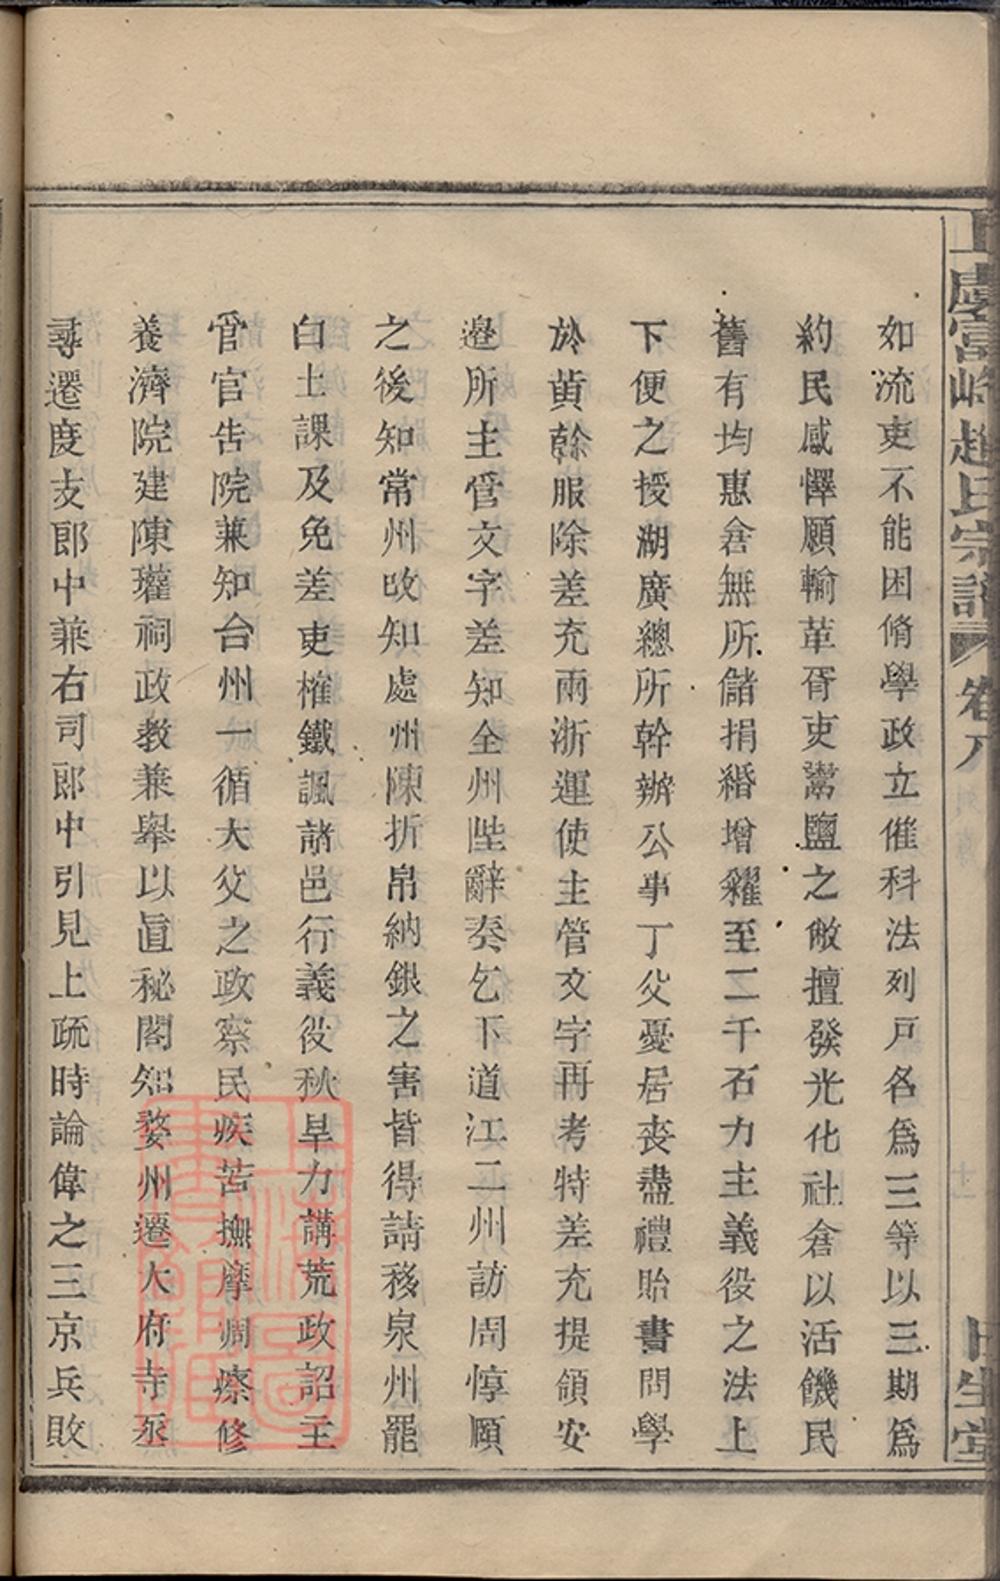 上虞富峰趙氏宗譜 卷八
日生堂
如流吏不能困脩學政立催科法列戸各爲三等以三期爲
約民感懌願輸革胥吏鬻鹽之敝擅發光化社倉以活饑民
舊有均惠倉無所儲捐緡增糴至二千石力主義役之法上
下便之授湖廣總所幹辦公事丁父憂居喪盡禮貽書問學
於黄幹服除差充兩浙運使主管文字再考特差充提領安
邉所主管文字差知全州陛辭奏乞下道江二州訪周惇頤
之後知常州改知處州陳折帛納銀之害皆得請移泉州罷
白土課及免差吏榷鐵諷諸邑行義役秋旱力講荒政詔主
管官告院兼知台州一循大父之政察民疾苦撫摩凋瘵修
養濟院建陳瓘祠政教兼舉以眞秘閣知婺州遷大府寺丞
尋遷度支郎中兼右司郎中引見上疏時論偉之三京兵敗